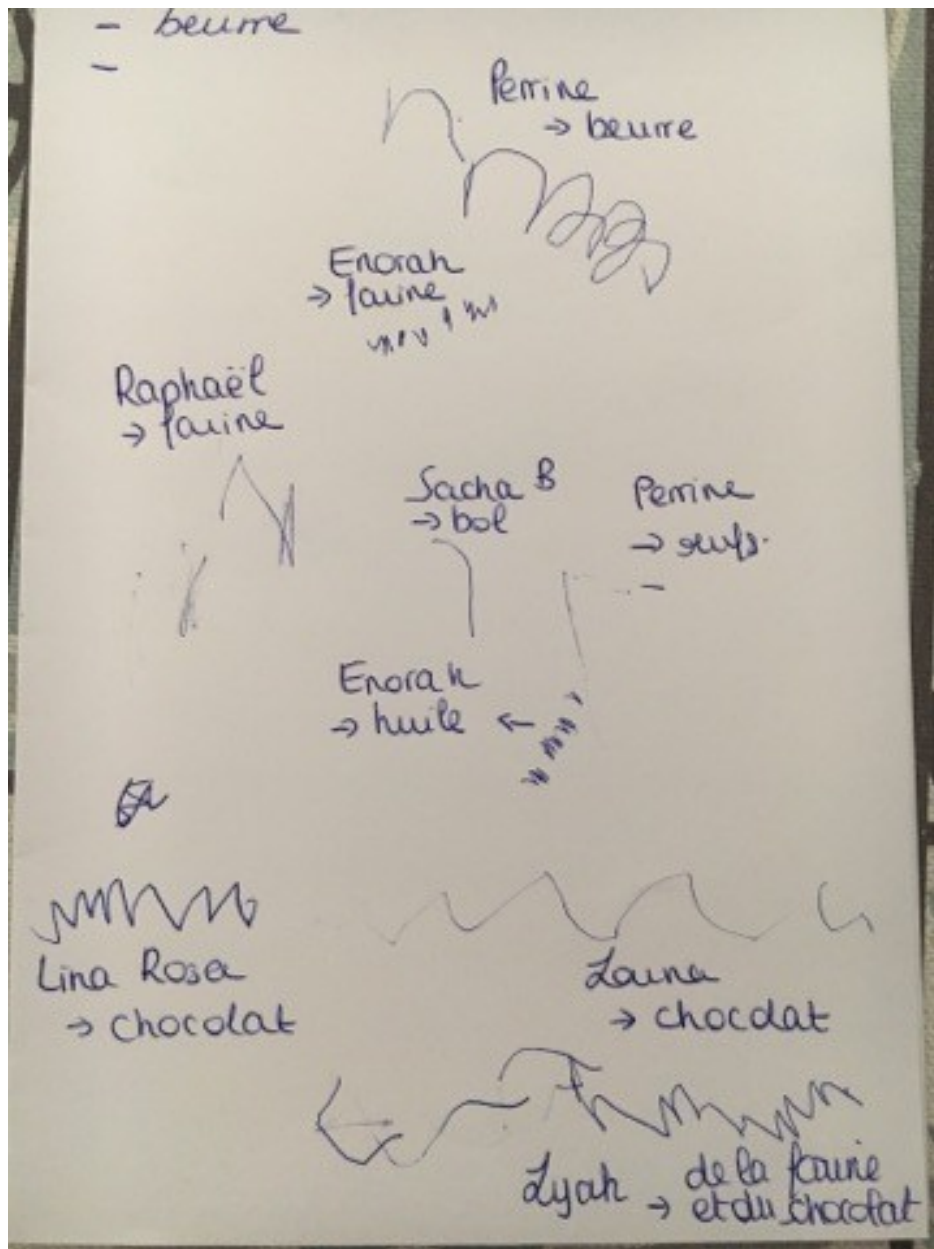 - beurre
-
Perrine
→ beurre
Enorah
→ farine
Raphaël
→ farine
Sacha B
→ bol
Perrine
→ œufs.
Enorah
→ huile ←
Lina Rosa
→ chocolat
Louna
→ chocolat
Lyah → de la farine
et du chocolat